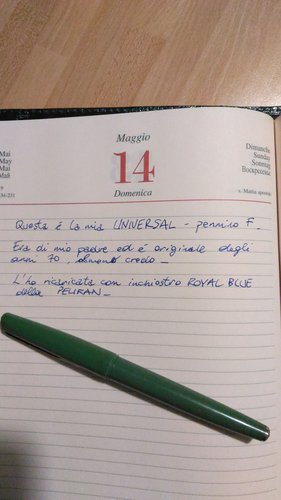 Maggio
Mai
May
Mai
Май
14
Dimanche
Sunday
Sonntag
Воскресенье
134-231
Domenica
s. Mattia apostolo
Questa è la mia UNIVERSAL - pennino F.
Era di mio padre ed è originale degli
anni 70, almeno credo -
L'ho ricaricata con inchiostro ROYAL BLUE
della PELIKAN -